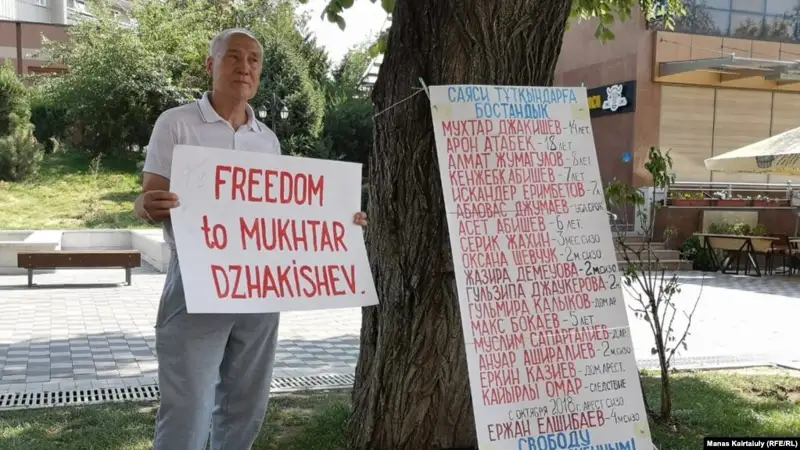 FREEDOM
to MUKHTAR
DZHAKISHEV.
САЯСИ ТҰТҚЫНДАРҒА
БОСТАНДЫҚ
МУХТАР ДЖАКИШЕВ-14 ЛЕТ.
АРОН АТАБЕК-18 ЛЕТ.
АЛМАТ ЖУМАГУЛОВ-8 ЛЕТ
КЕНЖЕБЕК АБИШЕВ-7 ЛЕТ
ИСКАНДЕР ЕРИМБЕТОВ-7Л.
АБЛОВАС ДЖУМАЕВ-
АСЕТ АБИШЕВ-
СЕРИК ЖАХИН-3 МЕС СИЗО
ОКСАНА ШЕВЧУК-2 М. СИЗО
ЖАЗИРА ДЕМЕУОВА-2М СИЗО
ГУЛЬЗИПА ДЖАУКЕРОВА-2
ГУЛЬМИРА КАЛЫКОВА-ДОМ АР.
МАКС БОКАЕВ-5 ЛЕТ.
МУСЛИМ САПАРГАЛИЕВ-
АНУАР АШИРАЛИЕВ-2М СИЗО
ЕРКИН КАЗИЕВ-ДОМ. АРЕСТ.
КАЙЫРЛЫ ОМАР-СЛЕДСТВИЕ
С ОКТЯБРЯ 2018. АРЕСТ СИЗО
ЕРЖАН ЕЛШИБАЕВ-4М СИЗО
СВОБОДУ
Manas Kairtaiuly (RFE/RL)